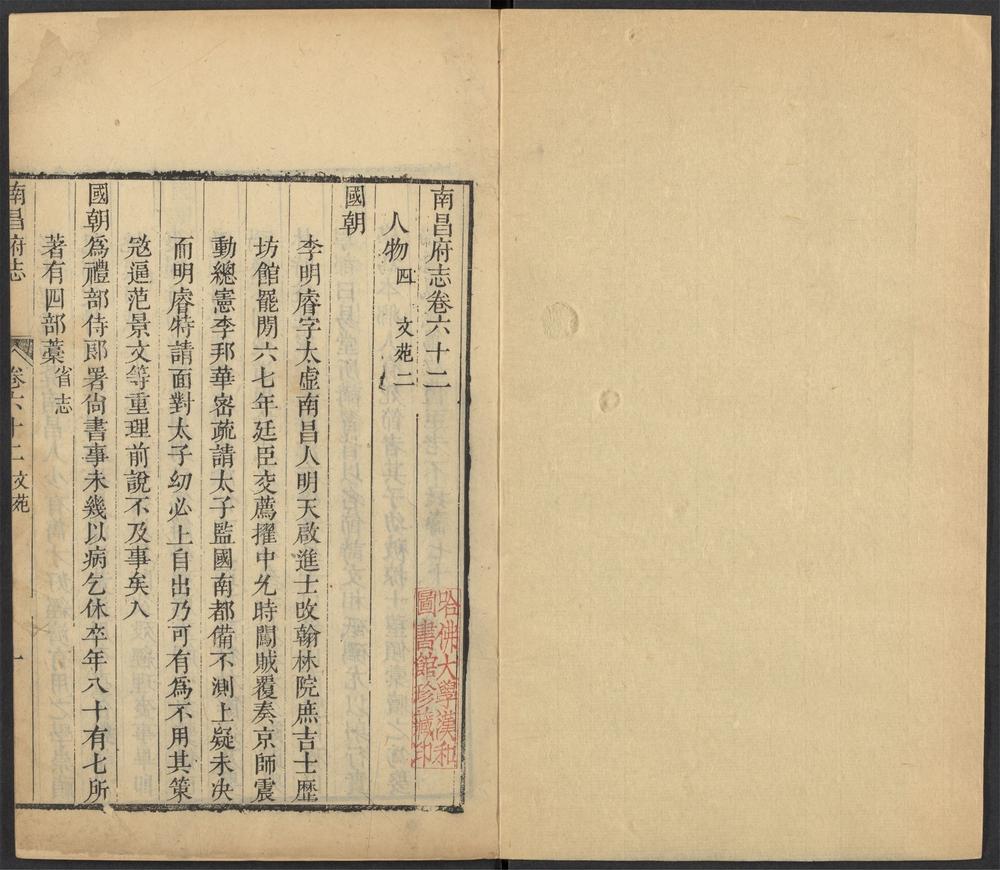 南昌府志卷六十二
人物四 文苑二
國朝
李明睿字太虛南昌人明天啟進士改翰林院庶吉士歷
坊館罷閒六七年廷臣交薦擢中允時闖賊覆秦京師震
動總憲李邦華密疏請太子監國南都備不測上疑未決
而明睿特請面對太子幼必上自出乃可有為不用其策
寇逼范景文等重理前說不及事矣入
國朝為禮部侍郎署尚書事未幾以病乞休卒年八十有七所
著有四部藁省志
南昌府志 卷六十二 文苑 一
哈佛大學漢和
圖書館珍藏印